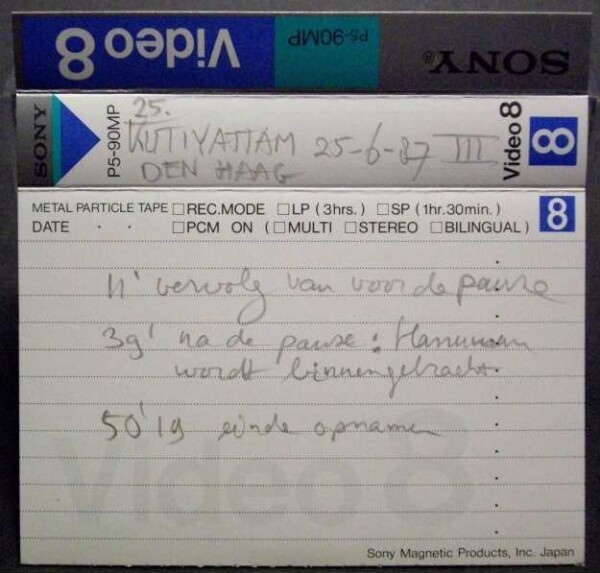 Video 8 P5-90MP SONY®
SONY P5-90MP 25.
KUTIYATTAM 25-6-87 III Video 8 8
DEN HAAG
METAL PARTICLE TAPE □REC.MODE □LP (3hrs.) □SP (1hr.30min.) 8
DATE . . □PCM ON (□MULTI □STEREO □BILINGUAL)
11' vervolg van voor de pauze
39' na de pauze: Hanuman
wordt binnengebracht.
50'19 einde opnamen
Video 8
Sony Magnetic Products, Inc. Japan